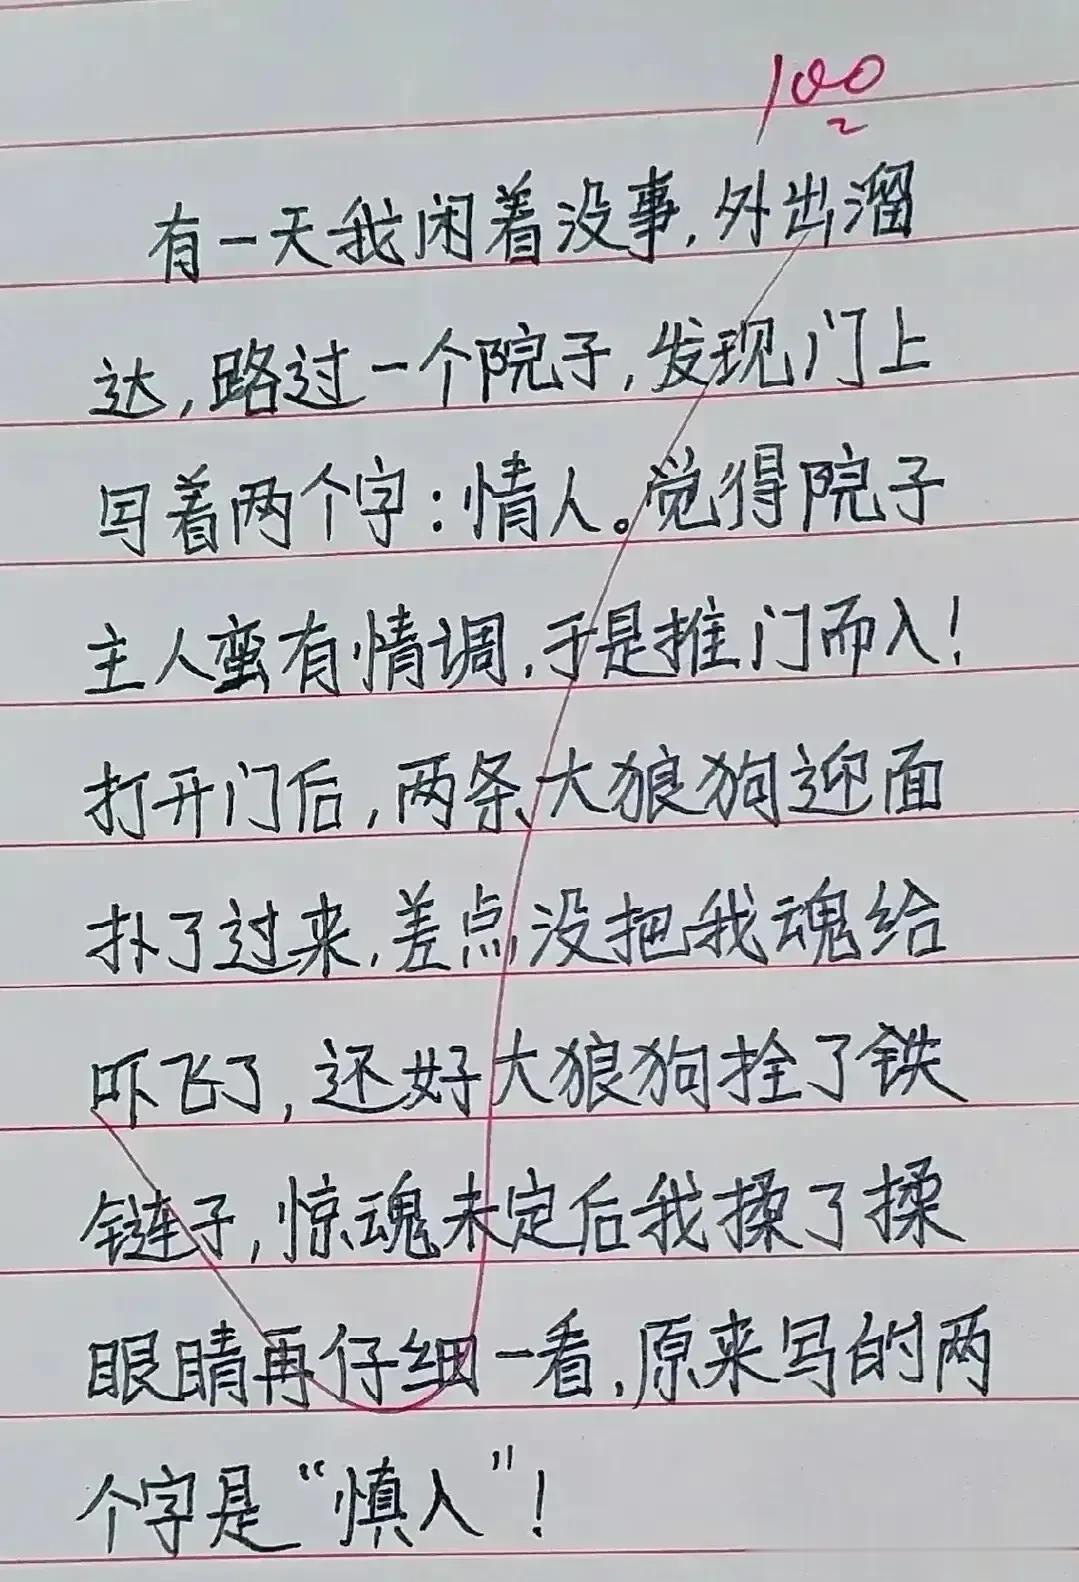 100
有一天我闲着没事，外出溜
达，路过一个院子，发现门上
写着两个字：情人。觉得院子
主人蛮有情调，于是推门而入！
打开门后，两条大狼狗迎面
扑了过来，差点没把我魂给
吓飞了，还好大狼狗拴了铁
链子，惊魂未定后我揉了揉
眼睛再仔细一看，原来写的两
个字是“慎入”！